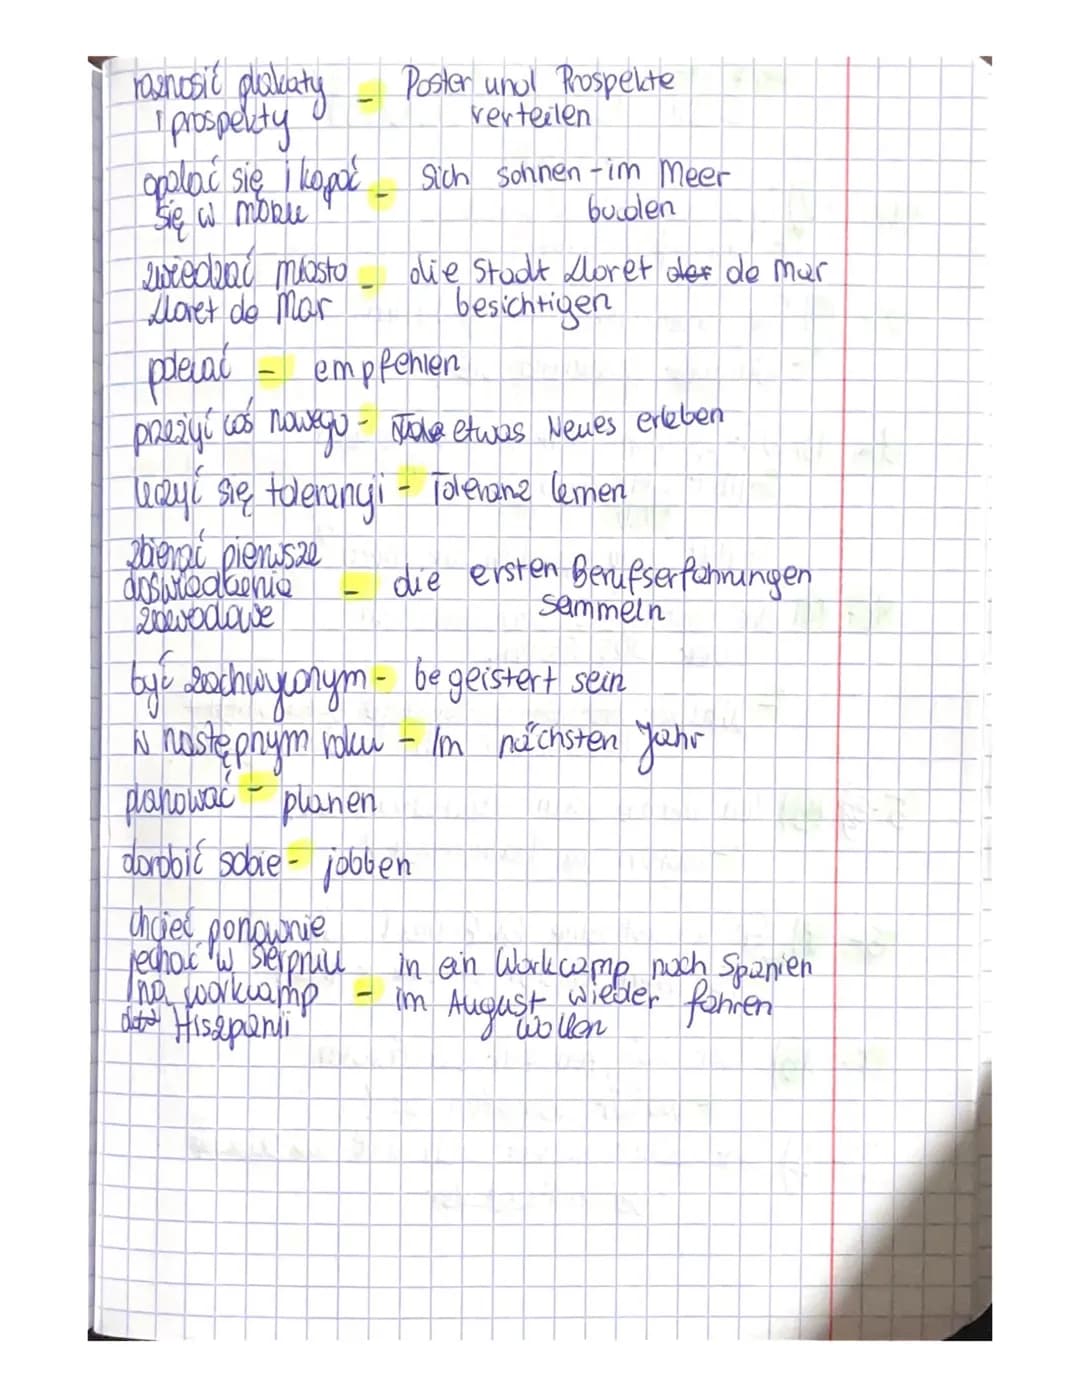 roznosić plakaty – Poster und Prospekte
i prospekty verteilen
opalać się i kąpać – sich sonnen - im Meer
się w morzu baden
zwiedzać miasto – die Stadt Lloret der de Mar
Lloret de Mar besichtigen
polecać – empfehlen
przeżyć coś nowego – etwas Neues erleben
uczyć się tolerancji – Toleranz lernen
zbierać pierwsze
doświadczenia – die ersten Berufserfahrungen
zawodowe sammeln
być zachwyconym – begeistert sein
w następnym roku – Im nächsten Jahr
planować – planen
dorobić sobie – jobben
chcieć ponownie
jechać w sierpniu in ein Workcamp nach Spanien
na workcamp – im August wieder fahren
do Hiszpanii wollen